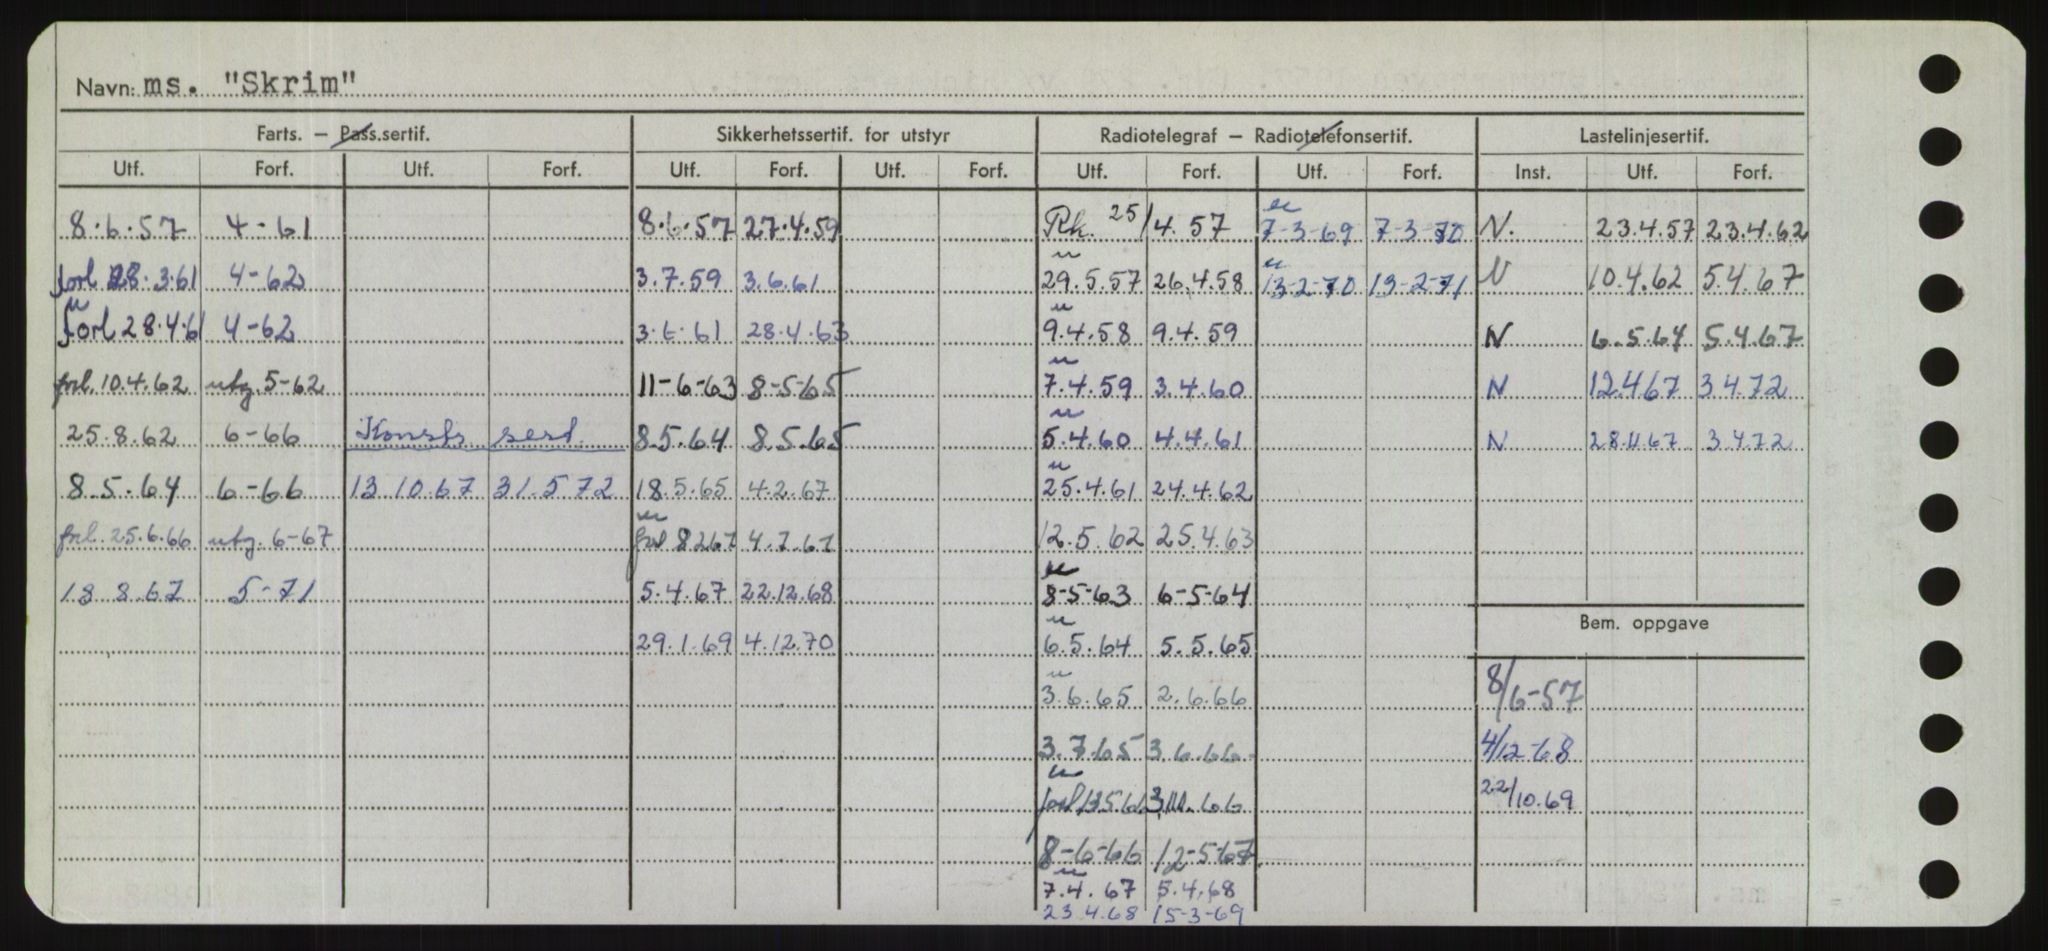 Navn: ms. "Skrim"
Farts. — Pass.sertif. Sikkerhetssertif. for utstyr Radiotelegraf — Radiotelefonsertif. Lastelinjesertif.
Utf. Forf. Utf. Forf. Utf. Forf. Utf. Forf. Utf. Forf. Utf. Forf. Inst. Utf. Forf.
8.6.57 4-61 8.6.57 27.4.59 Rk. 25/4.57 7-3-69 7-3-70 N. 23.4.57 23.4.62
forl 28.3.61 4-62 3.7.59 3.6.61 29.5.57 26.4.58 13-2-70 13-2-71 N 10.4.62 5.4.67
forl 28.4.61 4-62 3.6.61 28.4.63 9.4.58 9.4.59 N 6.5.64 5.4.67
forl. 10.4.62 utg. 5-62 11-6-63 8-5-65 7.4.59 3.4.60 N 12.4.67 3.4.72
25.8.62 6-66 Konstr. sert. 8.5.64 8.5.65 5.4.60 4.4.61 N 28.11.67 3.4.72
8.5.64 6-66 13.10.67 31.5.72 18.5.65 4.2.67 25.4.61 24.4.62
forl. 25.6.66 utg. 6-67 forl 8.2.67 4.7.67 12.5.62 25.4.63
18.8.67 5-71 5.4.67 22.12.68 8-5-63 6-5-64
Bem. oppgave
29.1.69 4.12.70 6.5.64 5.5.65
3.6.65 2.6.66 8/6-57
3.7.65 3.6.66 4/12-68
forl 22/10.69
8-6-66 12-5-67
7.4.67 5.4.68
23.4.68 15-3-69